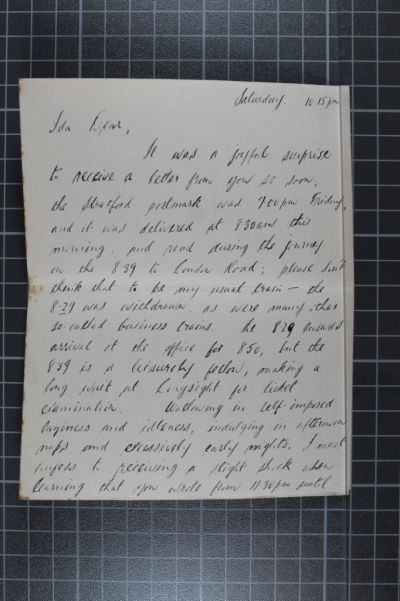 Saturday. 10.15pm
Ida Dear,
It was a joyful surprise
to receive a letter from you so soon,
the Stratford postmark was 7.00pm Friday,
and it was delivered at 8.30am this
morning, and read during the journey
on the 8.39 to London Road; please don't
think that to be my usual train — the
8-29 was withdrawn, as were many other
so-called business trains. The 829 ensures
arrival at the office for 8.50, but the
8.39 is a leisurely fellow, making a
long wait at Longsight for ticket
examination. Wallowing in self-imposed
laziness and idleness, indulging in afternoon
naps and excessively early nights, I must
confess to receiving a slight shock when
learning that you wrote from 11.30pm until